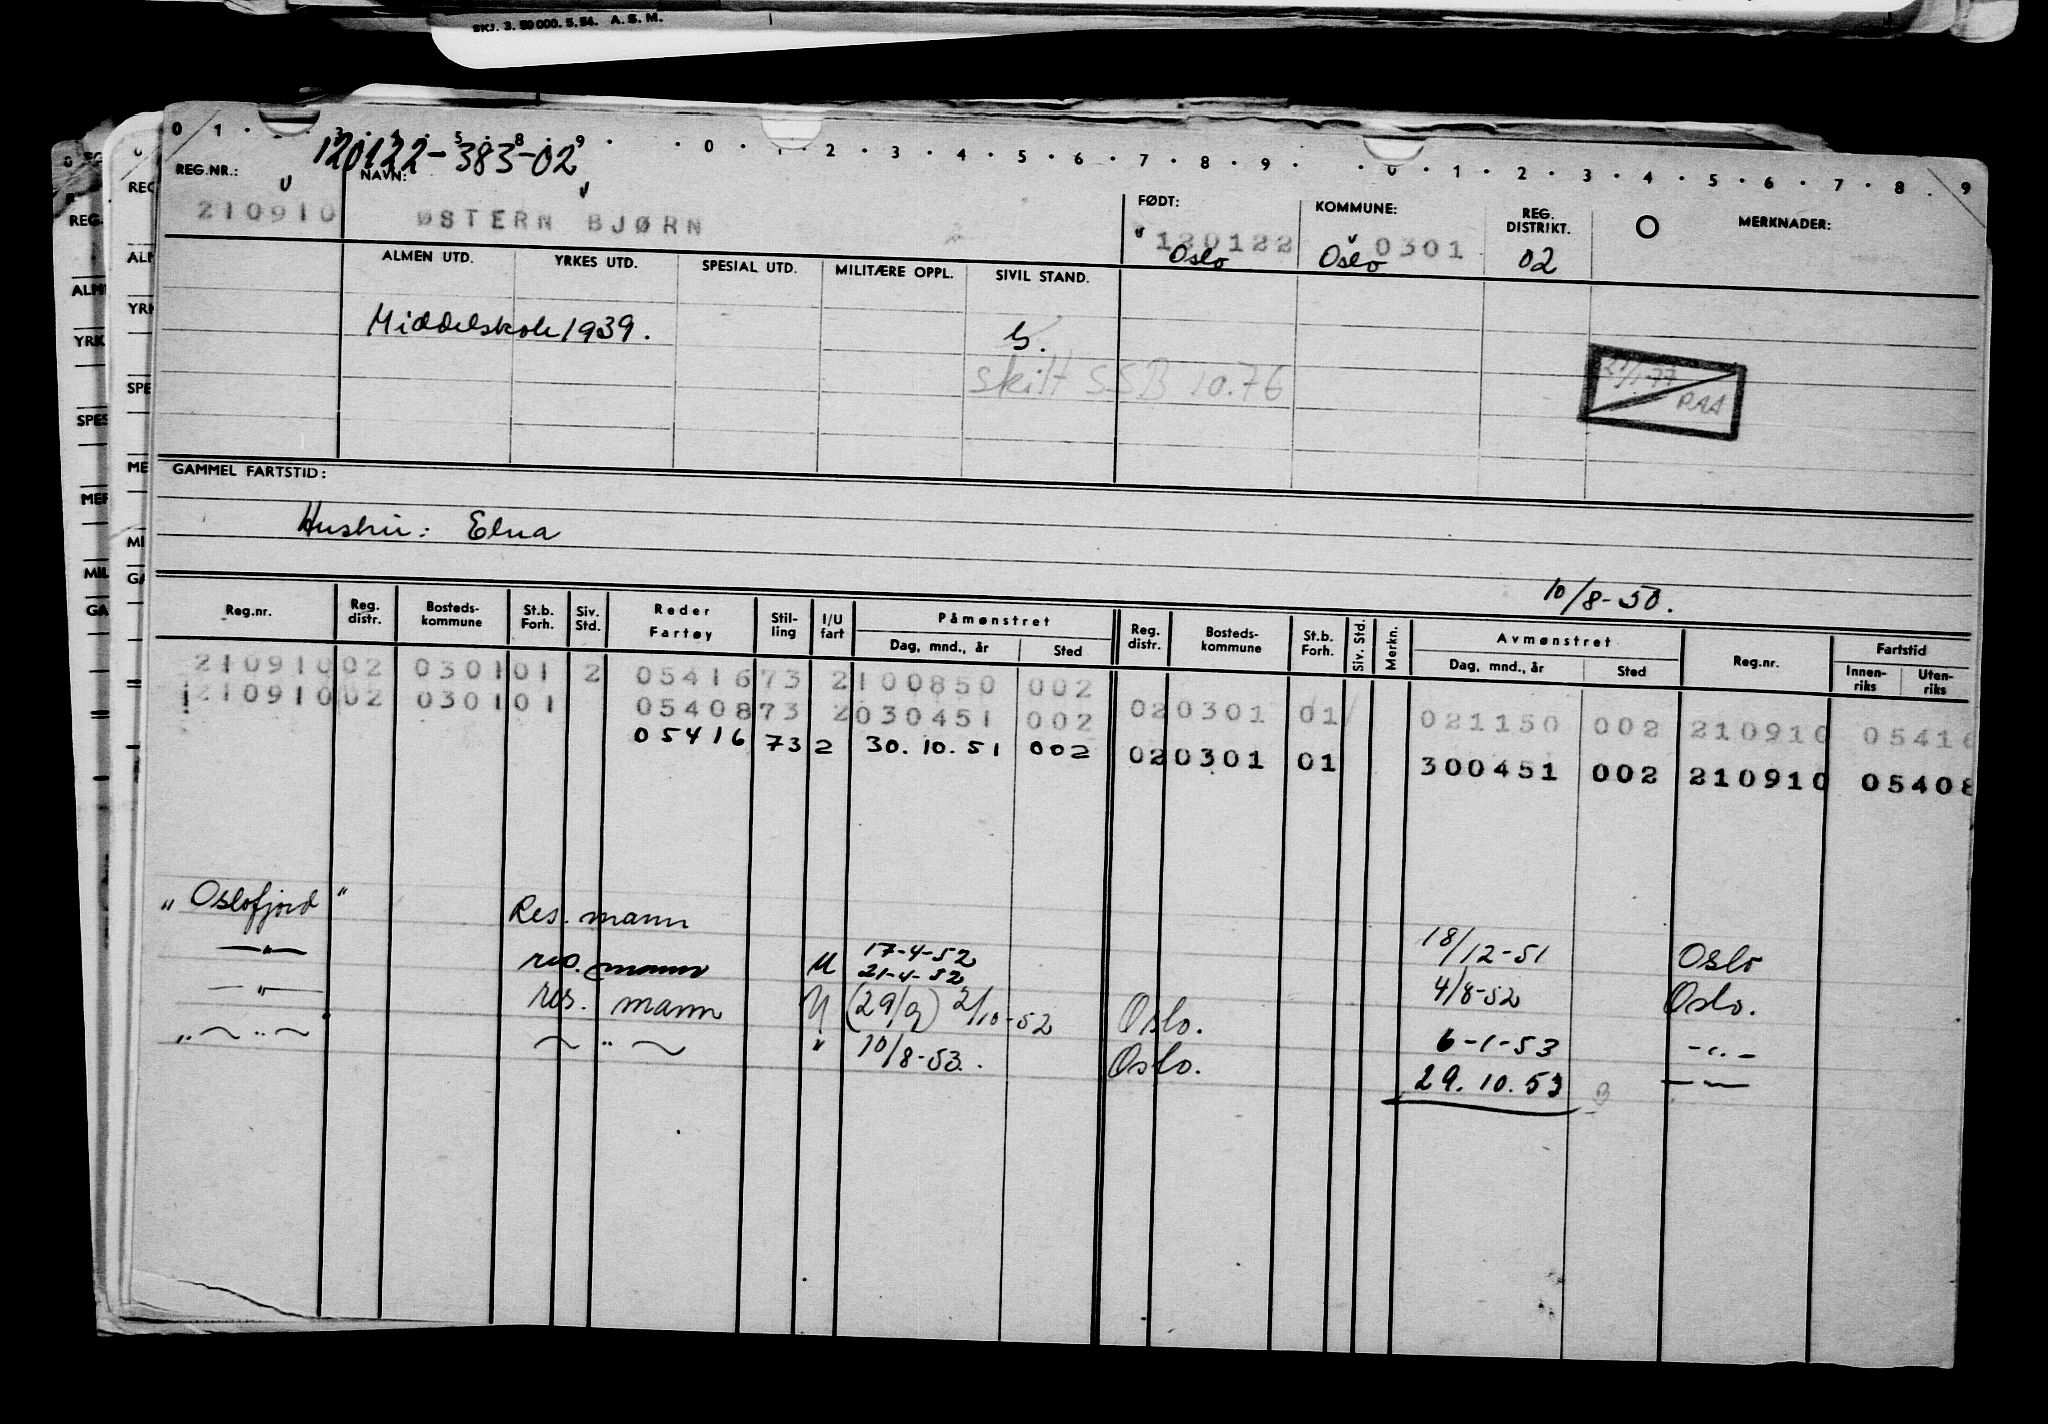 SKJ. 3. 50 000. 5. 54. A. S. M.
0 1 3 4 5 8 9 0 1 2 3 4 5 6 7 8 9 0 1 2 3 4 5 6 7 8 9
120122-383-02
REG.NR.: NAVN: FØDT: KOMMUNE: REG. DISTRIKT. MERKNADER:
210910 ØSTERN BJØRN 120122 0301
Oslo Oslo 02
ALMEN UTD. YRKES UTD. SPESIAL UTD. MILITÆRE OPPL. SIVIL STAND.
Middelskole 1939. G.
skilt SSB 10.76
RAA
GAMMEL FARTSTID:
Hustru: Elna
10/8-50.
Reg.nr. Reg. distr. Bosteds- kommune St.b. Forh. Siv. Std. Reder Fartøy Stil- ling I/U fart Påmønstret Dag, mnd., år Sted Reg. distr. Bosteds- kommune St.b. Forh. Siv. Std. Merkn. Avmønstret Dag, mnd., år Sted Reg.nr. Fartstid Innen- riks Uten- riks
210910 02 0301 01 2 05416 73 2 100850 002
210910 02 0301 01 05408 73 2 030451 002 02 0301 01 021150 002 210910 05416
05416 73 2 30.10.51 002 02 0301 01 300451 002 210910 05408
"Oslofjord" Res. mann 18/12-51 Oslo
—"— res. mann U 17-4-52
21-4-52 4/8-52 Oslo.
—"— res. mann U (29/9) 2/10-52 Oslo. 6-1-53 -"-
"~ " ~ ~ " ~ " 10/8-53. Oslo. 29.10.53 — —